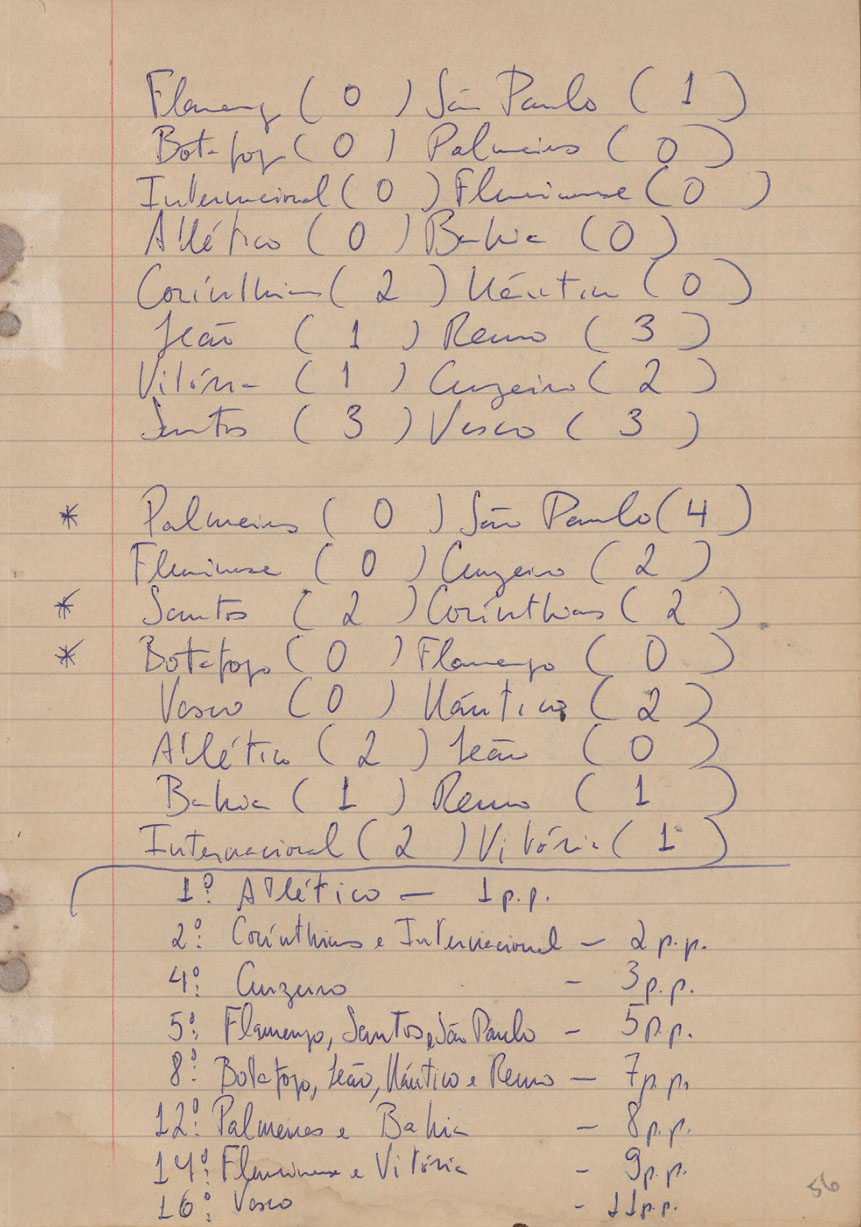 Flamengo ( 0 ) São Paulo ( 1 )
Botafogo ( 0 ) Palmeiras ( 0 )
Internacional ( 0 ) Fluminense ( 0 )
Atlético ( 0 ) Bahia ( 0 )
Corinthians ( 2 ) Náutico ( 0 )
Leão ( 1 ) Remo ( 3 )
Vitória ( 1 ) Cruzeiro ( 2 )
Santos ( 3 ) Vasco ( 3 )
* Palmeiras ( 0 ) São Paulo ( 4 )
Fluminense ( 0 ) Cruzeiro ( 2 )
* Santos ( 2 ) Corinthians ( 2 )
* Botafogo ( 0 ) Flamengo ( 0 )
Vasco ( 0 ) Náutico ( 2 )
Atlético ( 2 ) Leão ( 0 )
Bahia ( 1 ) Remo ( 1 )
Internacional ( 2 ) Vitória ( 1 )
1º Atlético — 1 p.p.
2º Corinthians e Internacional — 2 p.p.
4º Cruzeiro — 3 p.p.
5º Flamengo, Santos e São Paulo — 5 p.p.
8º Botafogo, Leão, Náutico e Remo — 7 p.p.
12º Palmeiras e Bahia — 8 p.p.
14º Fluminense e Vitória — 9 p.p.
16º Vasco — 11 p.p.
56